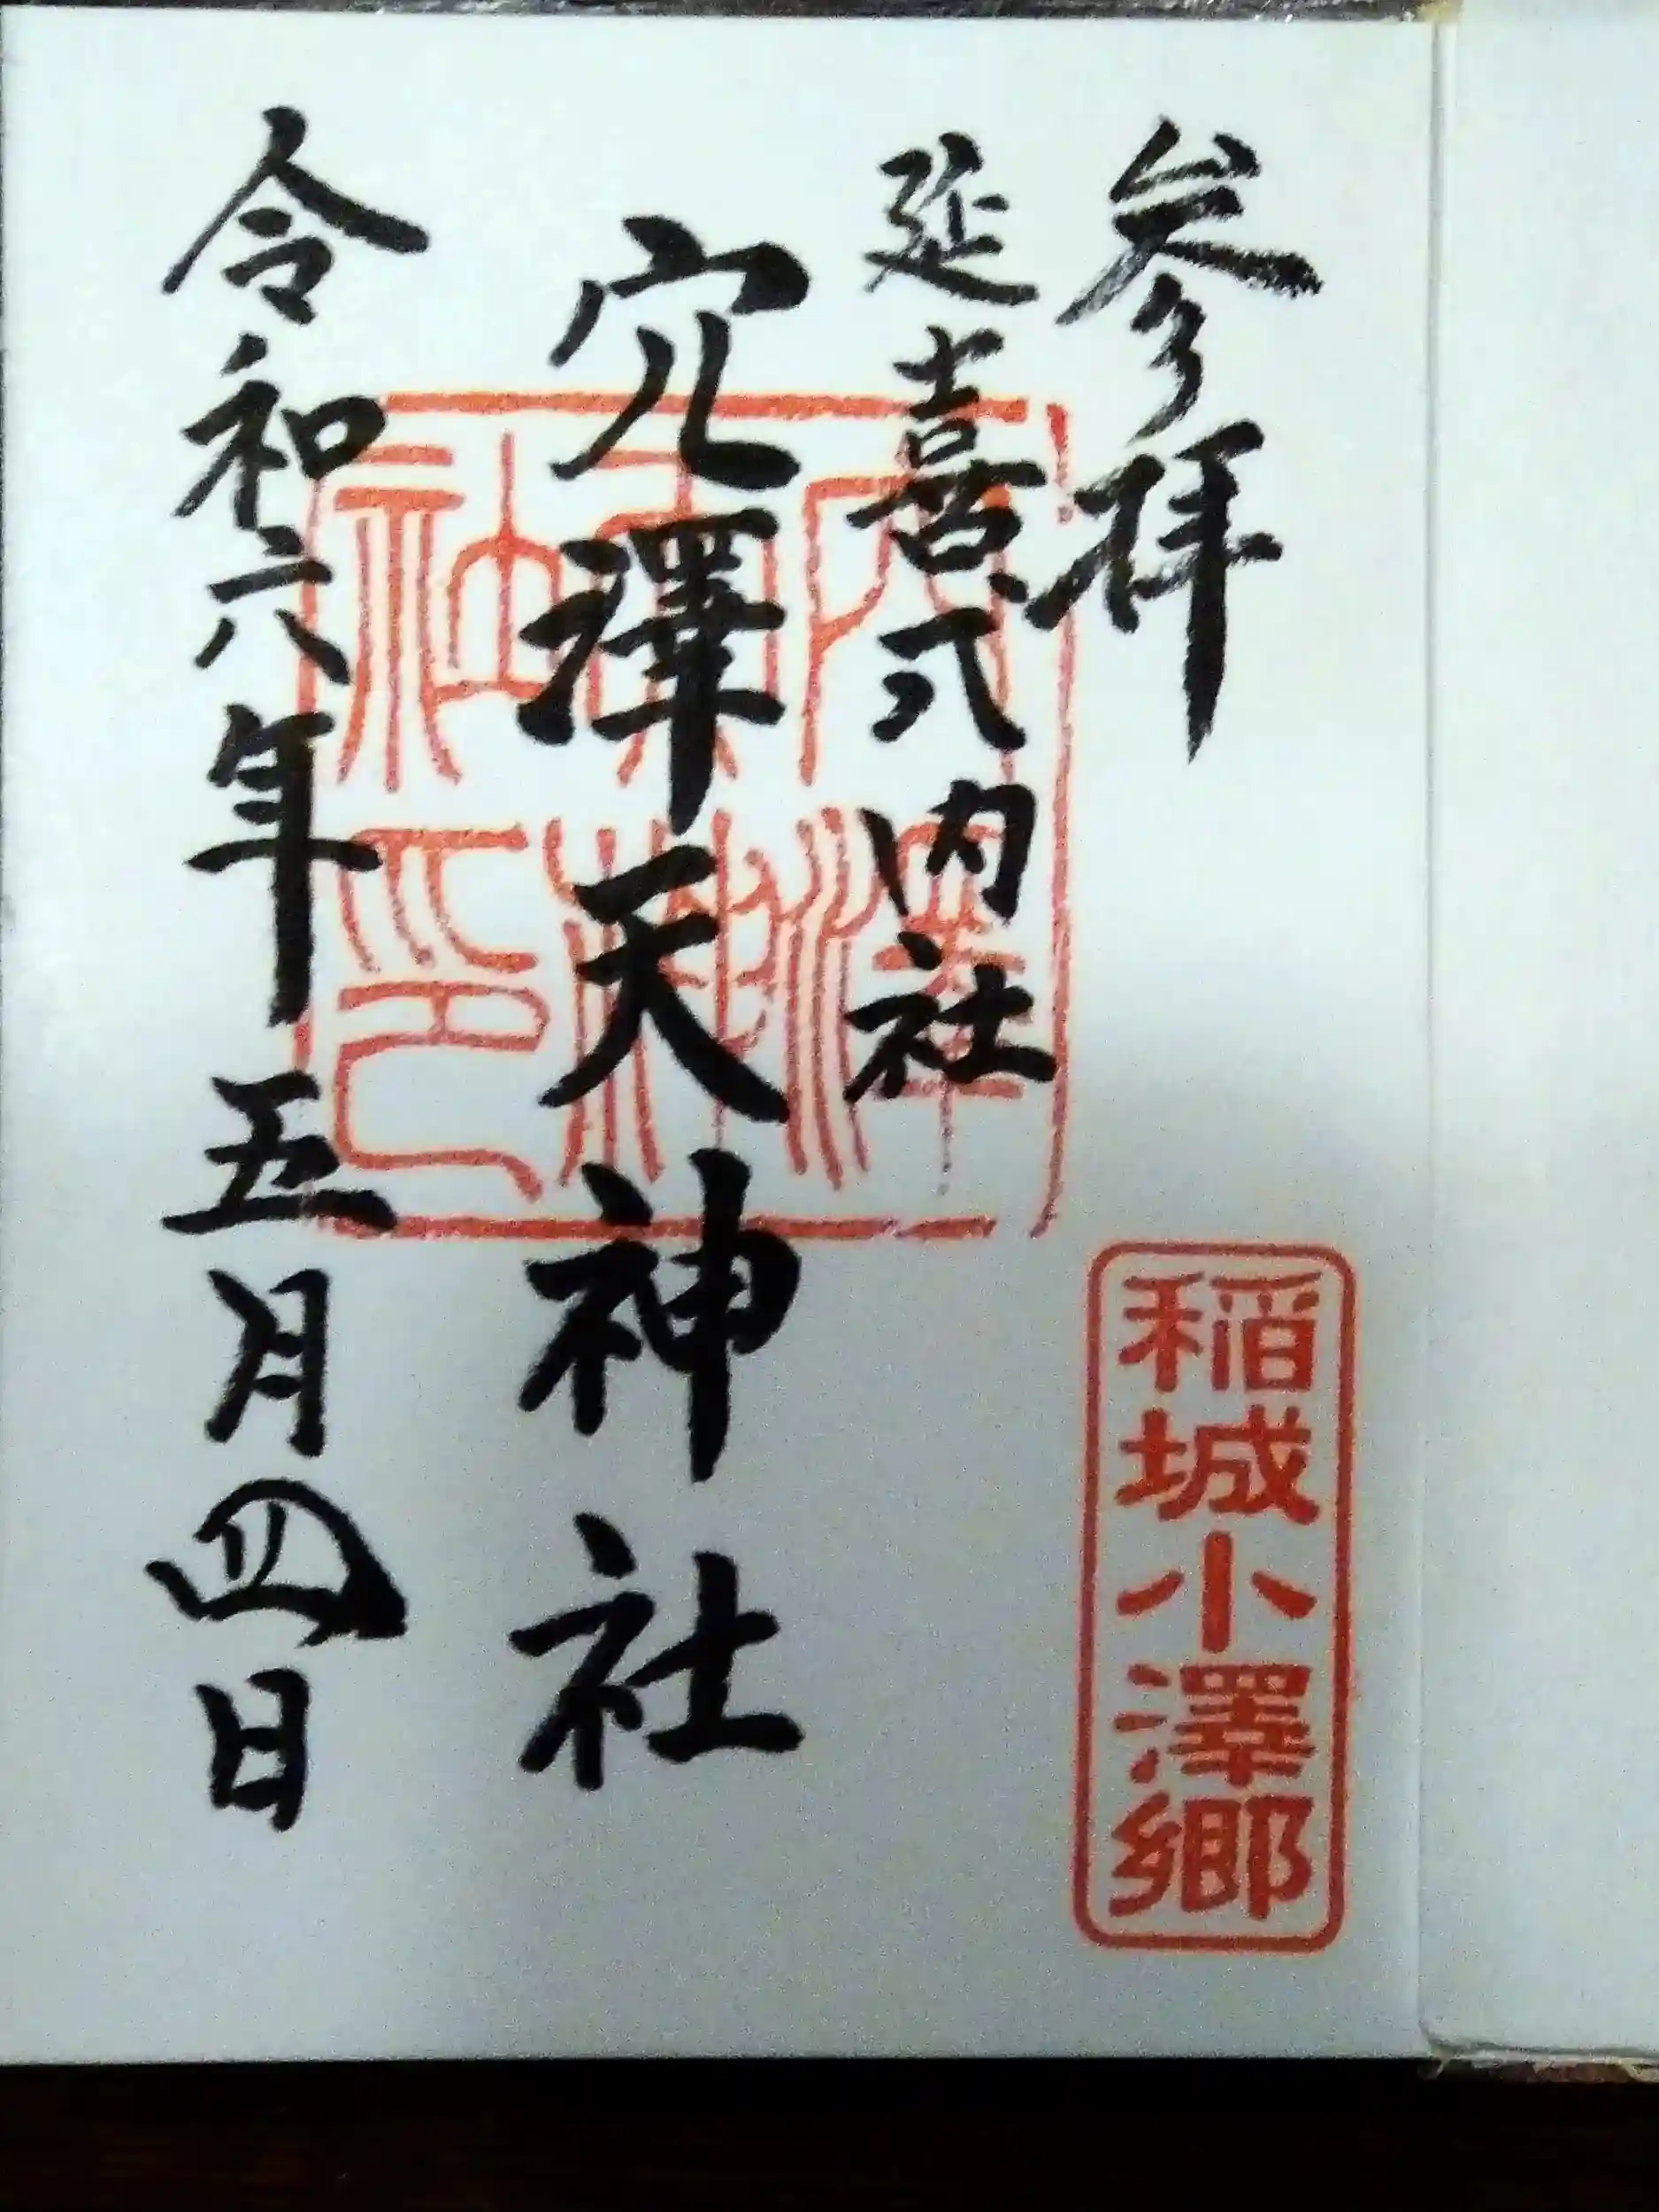 参拝
稲城小澤郷
延喜式内社
穴澤天神社
穴澤天神社印
令和六年五月四日